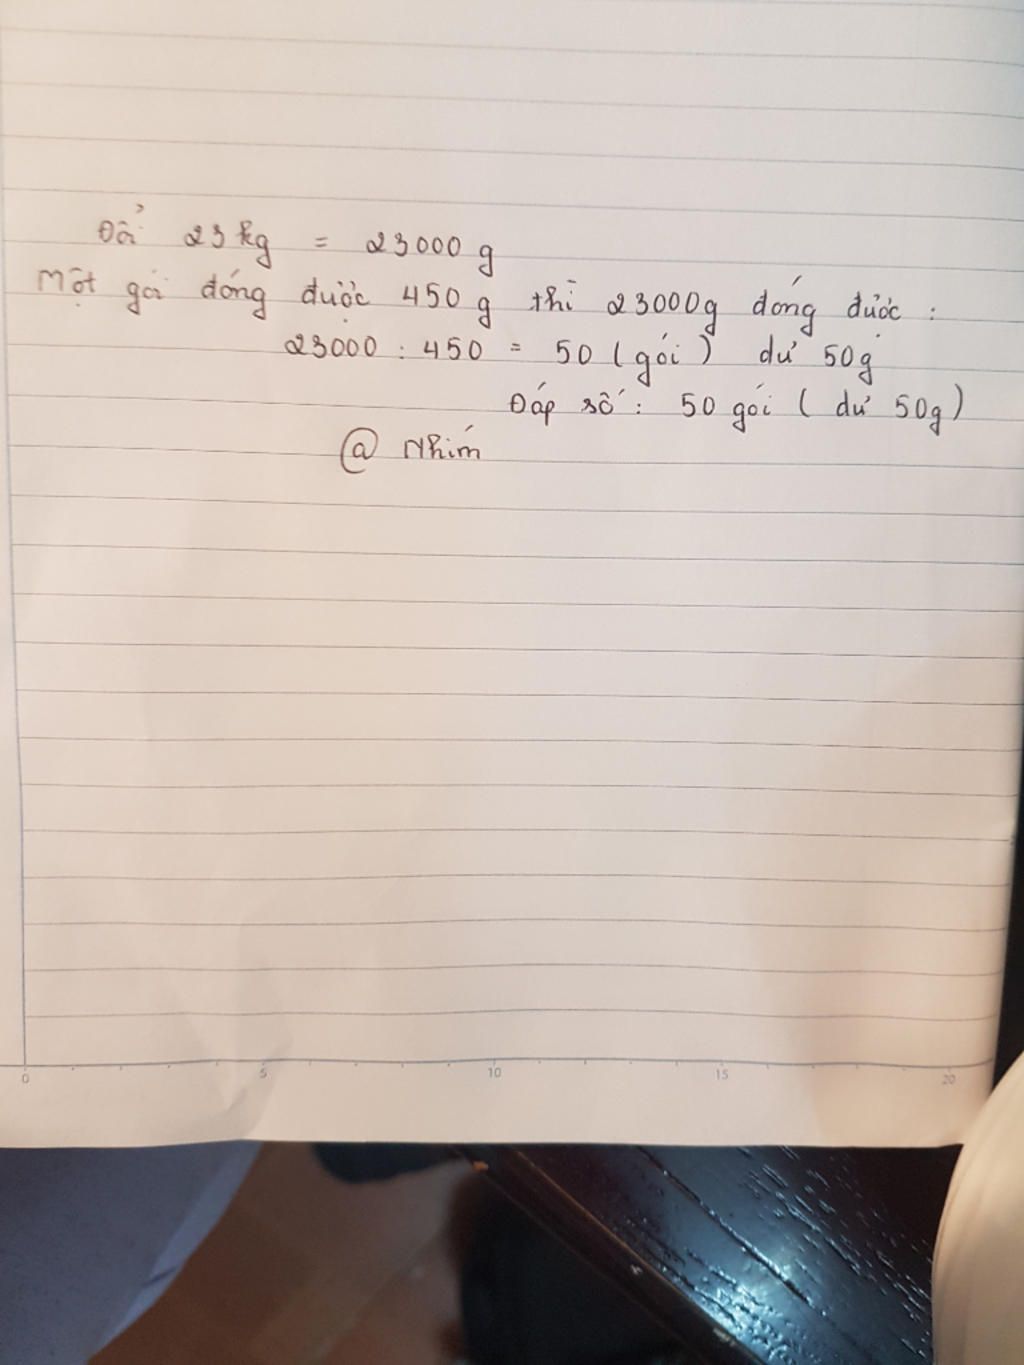 Đổi 23 kg = 23000 g
Một gói đóng được 450 g thì 23000g đóng được :
23000 : 450 = 50 (gói) dư 50g
Đáp số : 50 gói ( dư 50g)
@ Nhím
0 5 10 15 20